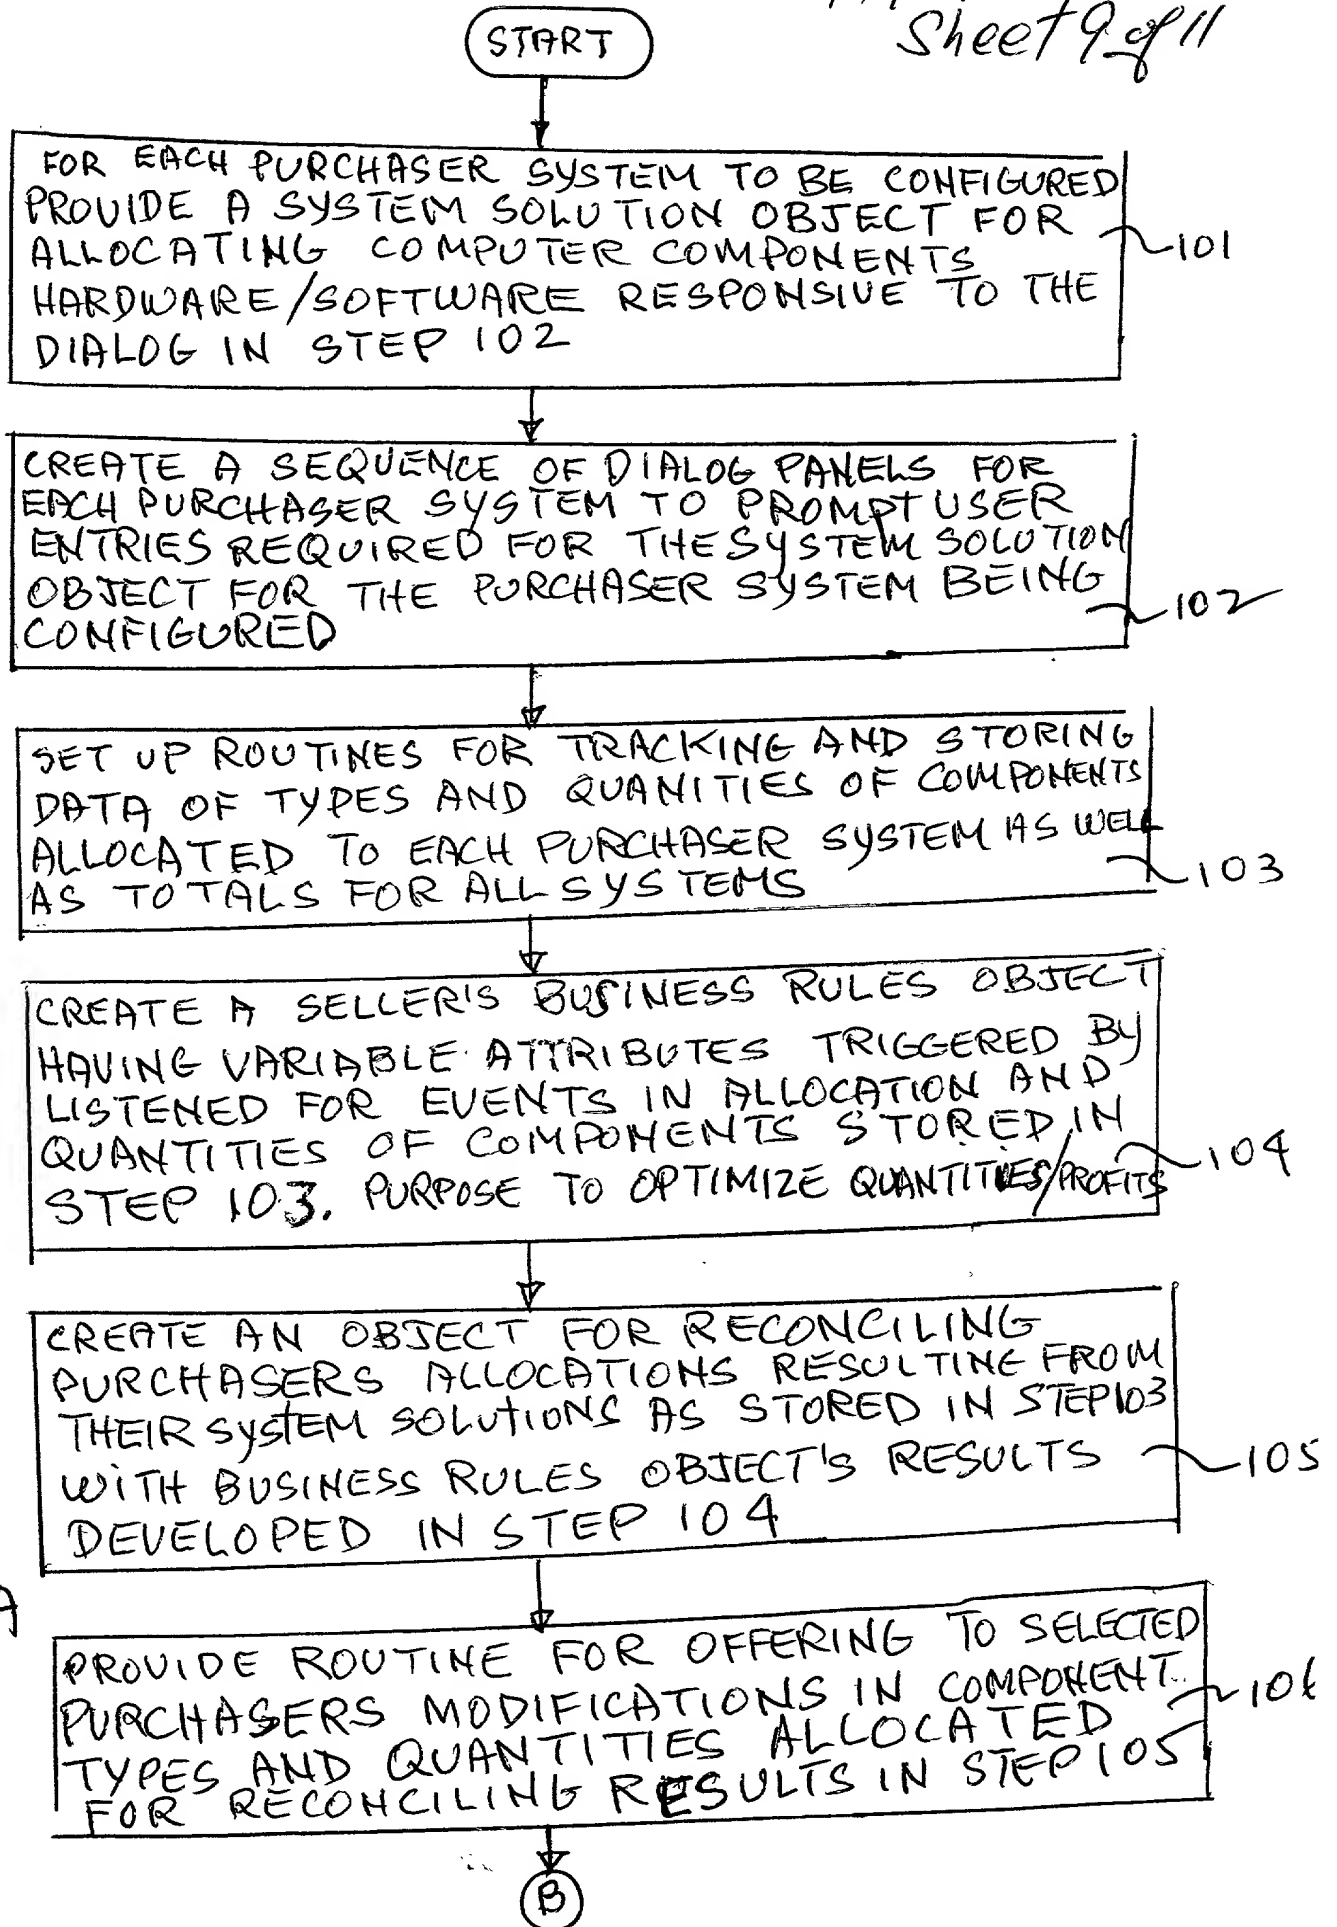 Sheet 9 of 11
START
FOR EACH PURCHASER SYSTEM TO BE CONFIGURED
PROVIDE A SYSTEM SOLUTION OBJECT FOR
ALLOCATING COMPUTER COMPONENTS
HARDWARE/SOFTWARE RESPONSIVE TO THE
DIALOG IN STEP 102
101
CREATE A SEQUENCE OF DIALOG PANELS FOR
EACH PURCHASER SYSTEM TO PROMPT USER
ENTRIES REQUIRED FOR THE SYSTEM SOLUTION
OBJECT FOR THE PURCHASER SYSTEM BEING
CONFIGURED
102
SET UP ROUTINES FOR TRACKING AND STORING
DATA OF TYPES AND QUANITIES OF COMPONENTS
ALLOCATED TO EACH PURCHASER SYSTEM AS WELL
AS TOTALS FOR ALL SYSTEMS
103
CREATE A SELLER'S BUSINESS RULES OBJECT
HAVING VARIABLE ATTRIBUTES TRIGGERED BY
LISTENED FOR EVENTS IN ALLOCATION AND
QUANTITIES OF COMPONENTS STORED IN
STEP 103. PURPOSE TO OPTIMIZE QUANTITIES/PROFITS
104
CREATE AN OBJECT FOR RECONCILING
PURCHASERS ALLOCATIONS RESULTING FROM
THEIR SYSTEM SOLUTIONS AS STORED IN STEP 103
WITH BUSINESS RULES OBJECT'S RESULTS
DEVELOPED IN STEP 104
105
A
PROVIDE ROUTINE FOR OFFERING TO SELECTED
PURCHASERS MODIFICATIONS IN COMPONENT
TYPES AND QUANTITIES ALLOCATED
FOR RECONCILING RESULTS IN STEP 105
106
B